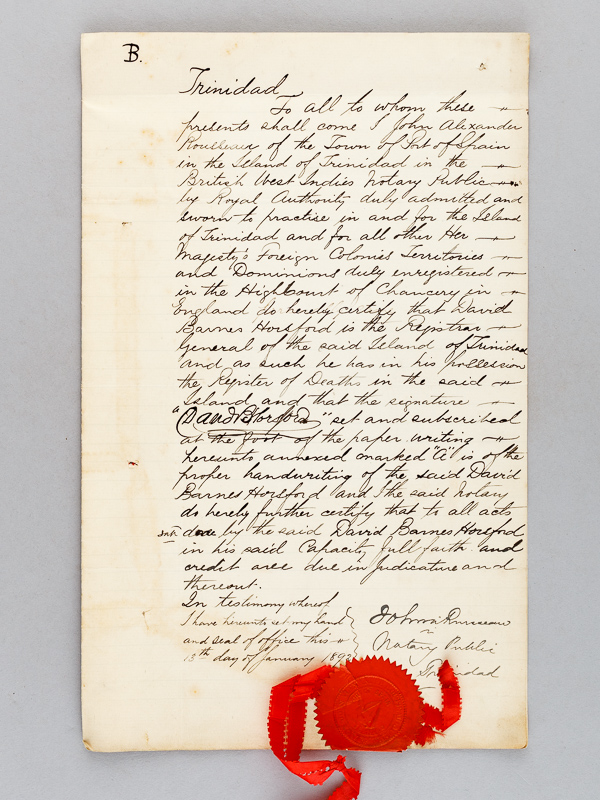 B.
Trinidad
To all to whom these
presents shall come I John Alexander
Rousseau of the Town of Port of Spain
in the Island of Trinidad in the
British West Indies Notary Public
by Royal Authority duly admitted and
sworn to practise in and for the Island
of Trinidad and for all other Her
Majesty's Foreign Colonies Territories
and Dominions duly enregistered
in the High Court of Chancery in
England do hereby certify that David
Barnes Horsford is the Registrar
General of the said Island of Trinidad
and as such he has in his possession
the Register of Deaths in the said
Island and that the signature
"David B Horsford" set and subscribed
at the foot of the paper writing
hereunto annexed marked "A" is of the
proper handwriting of the said David
Barnes Horsford and I the said notary
do hereby further certify that to all acts
done by the said David Barnes Horsford
in his said Capacity full faith and
credit are due in Judicature and
thereout.
In testimony whereof
I have hereunto set my hand
and seal of office this
13th day of January 1892
Notary Public
Trinidad